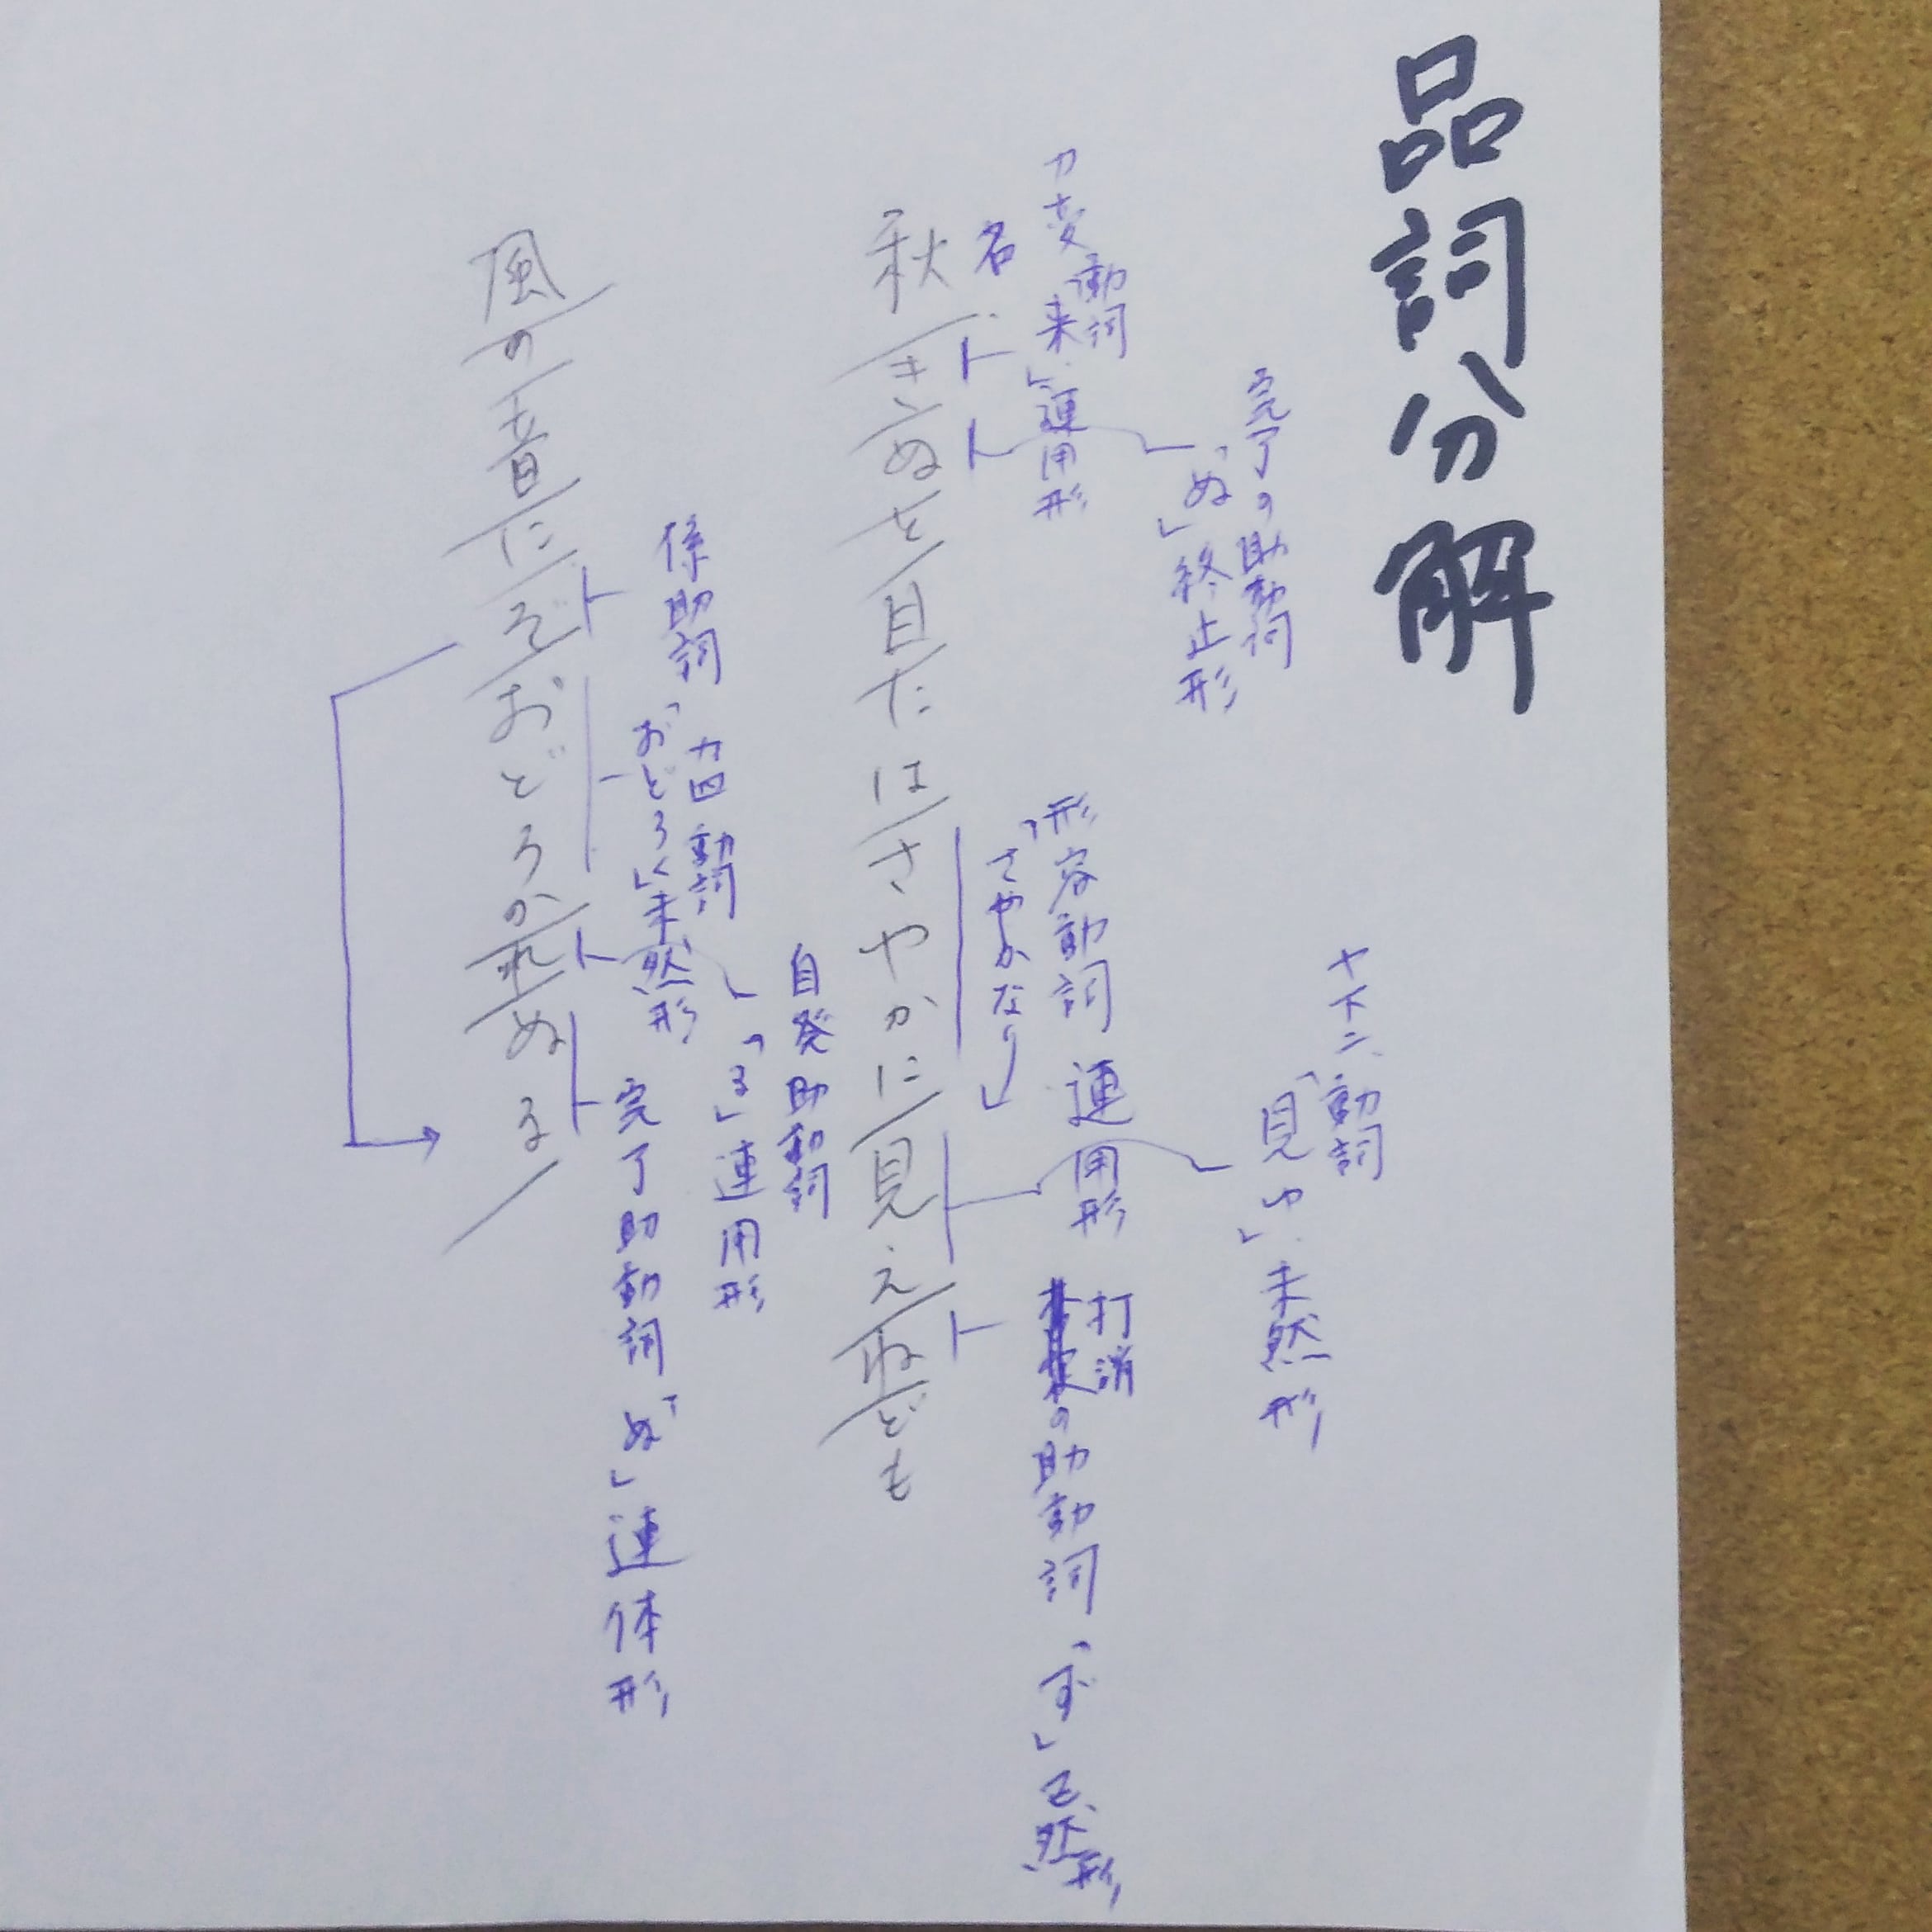 品詞分解
完了の助動詞
「ぬ」終止形
カ変動詞
「来」連用形
名
秋きぬと目にはさやかに見えねども
ヤ下二、動詞
「見ゆ」未然形
形容動詞 連用形
「さやかなり」
打消
の助動詞「ず」已然形
係助詞
カ四動詞
「おどろく」未然形
自発助動詞
「る」連用形
完了助動詞「ぬ」連体形
風の音にぞおどろかれぬる